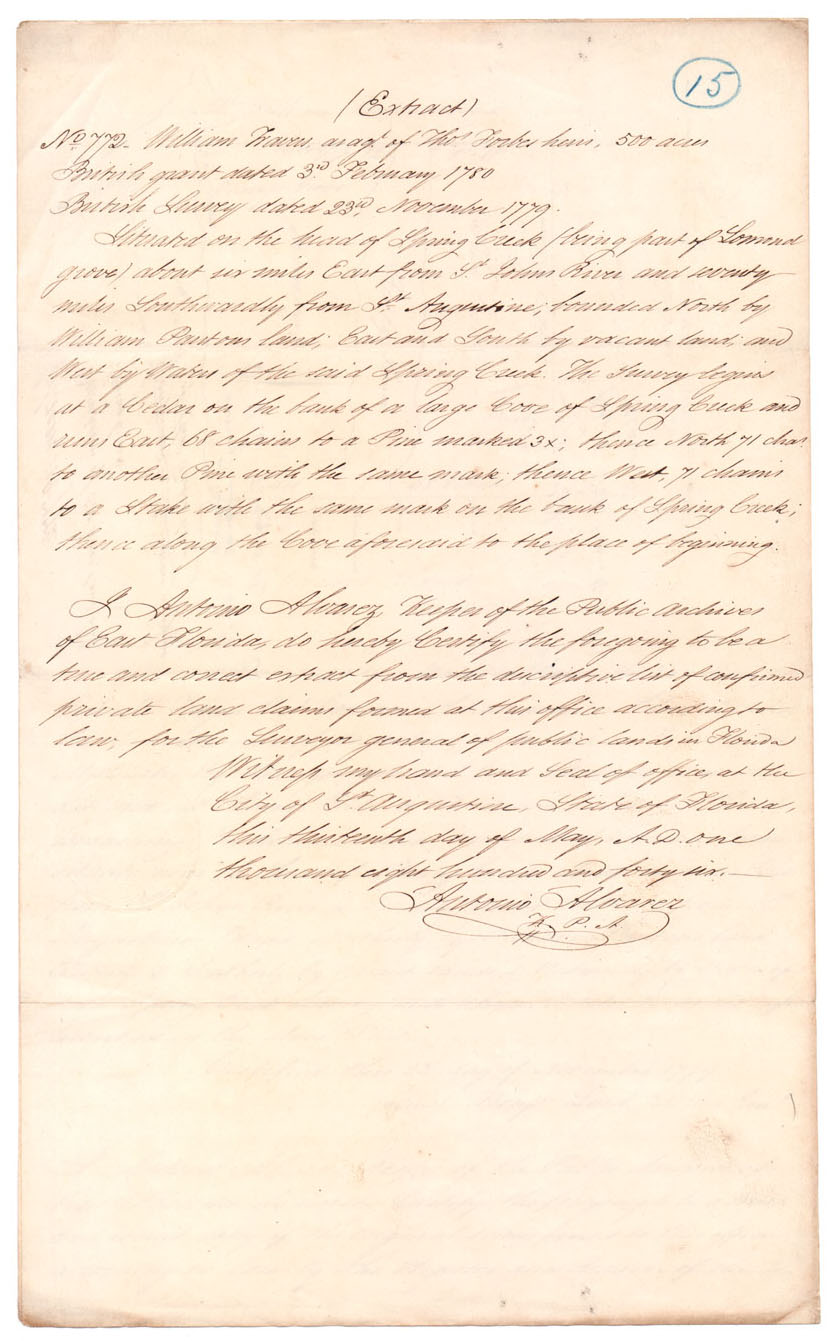 15
(Extract)
No. 772. William Travers as agt. of Thos. Forbes heirs, 500 acres
British grant dated 3rd. February 1780
British Survey dated 23d, November 1779.
Situated on the head of Spring Creek (being part of Lomond
grove) about six miles East from St. Johns River and seventy
miles Southwardly from St. Augustine; bounded North by
William Pantons land; East and South by vacant land; and
West by Waters of the said Spring Creek. The Survey begins
at a Cedar on the bank of a large Cove of Spring Creek and
runs East, 68 chains to a Pine marked 3x; thence North 71 chas.
to another Pine with the same mark; thence West, 71 chains
to a Stake with the same mark on the bank of Spring Creek;
thence along the Cove aforesaid to the place of beginning.
I Antonio Alvarez, Keeper of the Public Archives
of East Florida, do hereby Certify the foregoing to be a
true and correct extract from the descriptive list of confirmed
private land claims formed at this office according to
law, for the Surveyor general of public lands in Florida
Witness my hand and Seal of office, at the
City of St. Augustine, State of Florida,
this thirteenth day of May, A.D. one
thousand eight hundred and forty six.—
Antonio Alvarez
K. P. A.